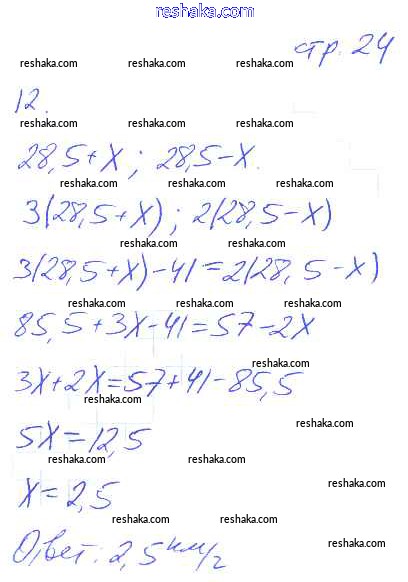 reshaka.com
стр. 24
reshaka.com reshaka.com reshaka.com
12.
reshaka.com reshaka.com reshaka.com
28,5+x; 28,5-x.
reshaka.com reshaka.com reshaka.com
3(28,5+x); 2(28,5-x)
reshaka.com reshaka.com
3(28,5+x)-41=2(28,5-x)
reshaka.com reshaka.com reshaka.com
85,5+3x-41=57-2x
reshaka.com
3x+2x=57+41-85,5
reshaka.com
reshaka.com
5x=12,5
reshaka.com reshaka.com
reshaka.com
x=2,5
reshaka.com reshaka.com
Ответ: 2,5 км/ч
reshaka.com reshaka.com